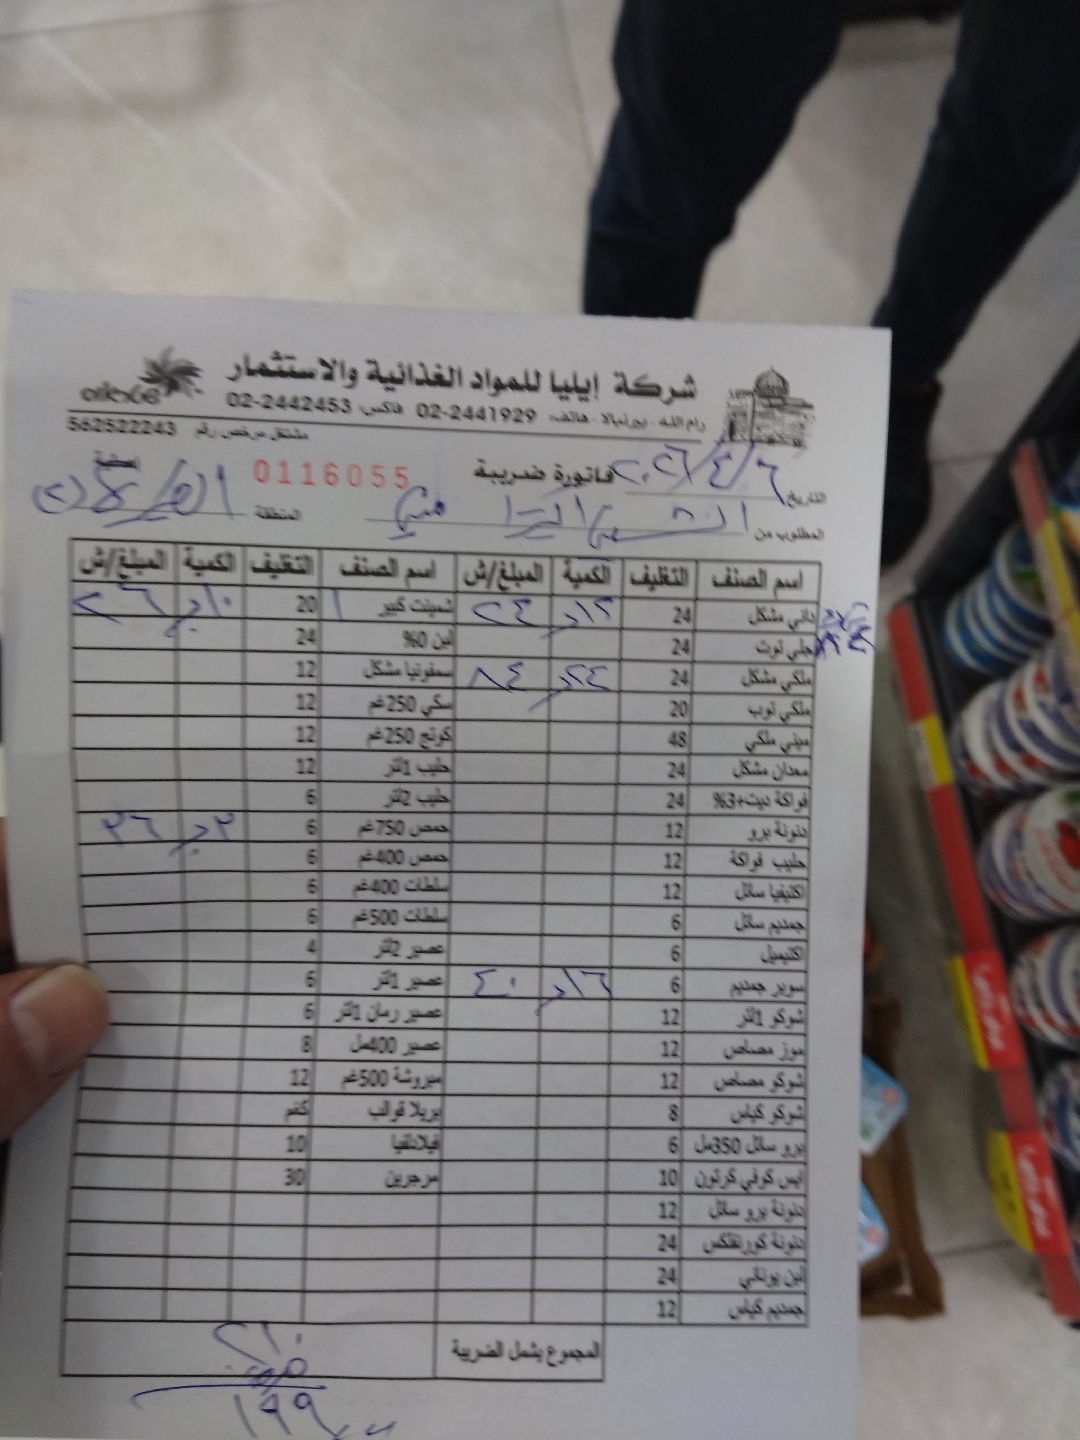 شركة إيليا للمواد الغذائية والاستثمار
رام الله - بيرنبالا - هاتف: 02-2441929 فاكس: 02-2442453
مشتغل مرخص رقم 562522243
التاريخ ٢٠٢٦/٤/٦ فاتورة ضريبة 0116055
المطلوب من المنطقة
اسم الصنف التغليف الكمية المبلغ/ش اسم الصنف التغليف الكمية المبلغ/ش
داني مشكل 24 ١٢ ٢٤ شمينت كبير 20 ١٠ ٢٦
جلي توت 24 لبن 0% 24
ملكي مشكل 24 ٢٤ ٨٤ سمفونيا مشكل 12
ملكي توب 20 سكي 250غم 12
ميني ملكي 48 كوتج 250غم 12
معدان مشكل 24 حليب 1لتر 12
فواكة ديت+3% 24 حليب 2لتر 6
دنونة برو 12 حمص 750غم 6 ٣ ٣٦
حليب فواكة 12 حمص 400غم 6
اكتيفيا سائل 12 سلطات 400غم 6
جمديم سائل 6 سلطات 500غم 6
اكتيميل 6 عصير 2لتر 4
سوبر جمديم 6 ١٦ ٤٠ عصير 1لتر 6
شوكو 1لتر 12 عصير رمان 1لتر 6
موز مصاص 12 عصير 400مل 8
شوكو مصاص 12 مبروشة 500غم 12
شوكو كياس 8 بريلا قوالب كغم
برو سائل 350مل 6 فيلادلفيا 10
ايس كوفي كرتون 10 مرجرين 30
دنونة برو سائل 12
دنونة كورنفلكس 24
لبن يوناني 24
جمديم كياس 12
المجموع يشمل الضريبة ٢١٠
١٩٩